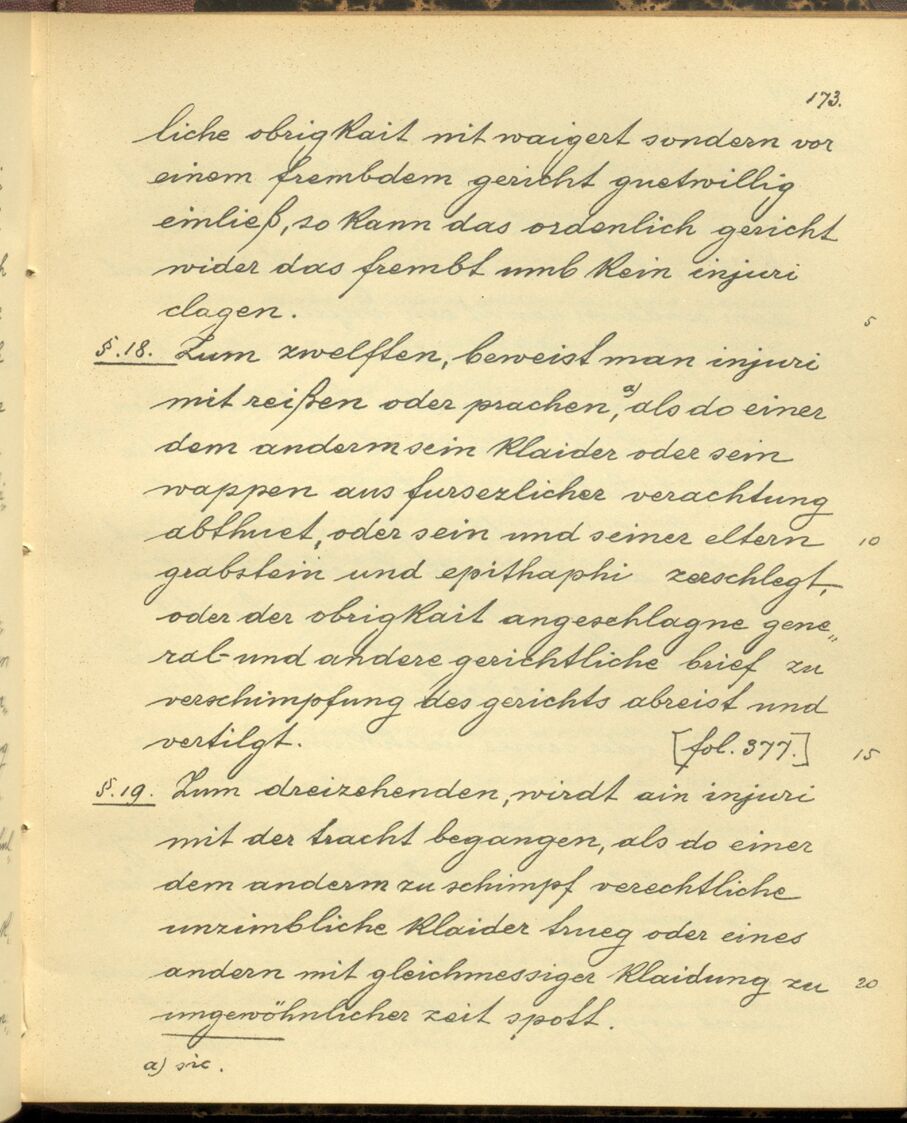 173.
liche obrigkait nit waigert sondern vor
einem frembdem gericht guetwillig
einließ, so kann das ordenlich gericht
wider das frembt umb kein injuri
clagen.
5
§.18. Zum zwelften, beweist man injuri
mit reißen oder prachen,a) als do einer
dem anderm sein klaider oder sein
wappen aus fursezlicher verachtung
abthuet, oder sein und seiner eltern
10
grabstein und epithaphi zerschlegt,
oder der obrigkait angeschlagne gene„
ral- und andere gerichtliche brief zu
verschimpfung des gerichts abreist und
vertilgt. [fol. 377.]
15
§.19. Zum dreizehenden, wirdt ain injuri
mit der tracht begangen, als do einer
dem anderm zu schimpf verechtliche
unzimbliche klaider trueg oder eines
andern mit gleichmessiger klaidung zu
20
ungewöhnlicher zeit spott.
a) sic.